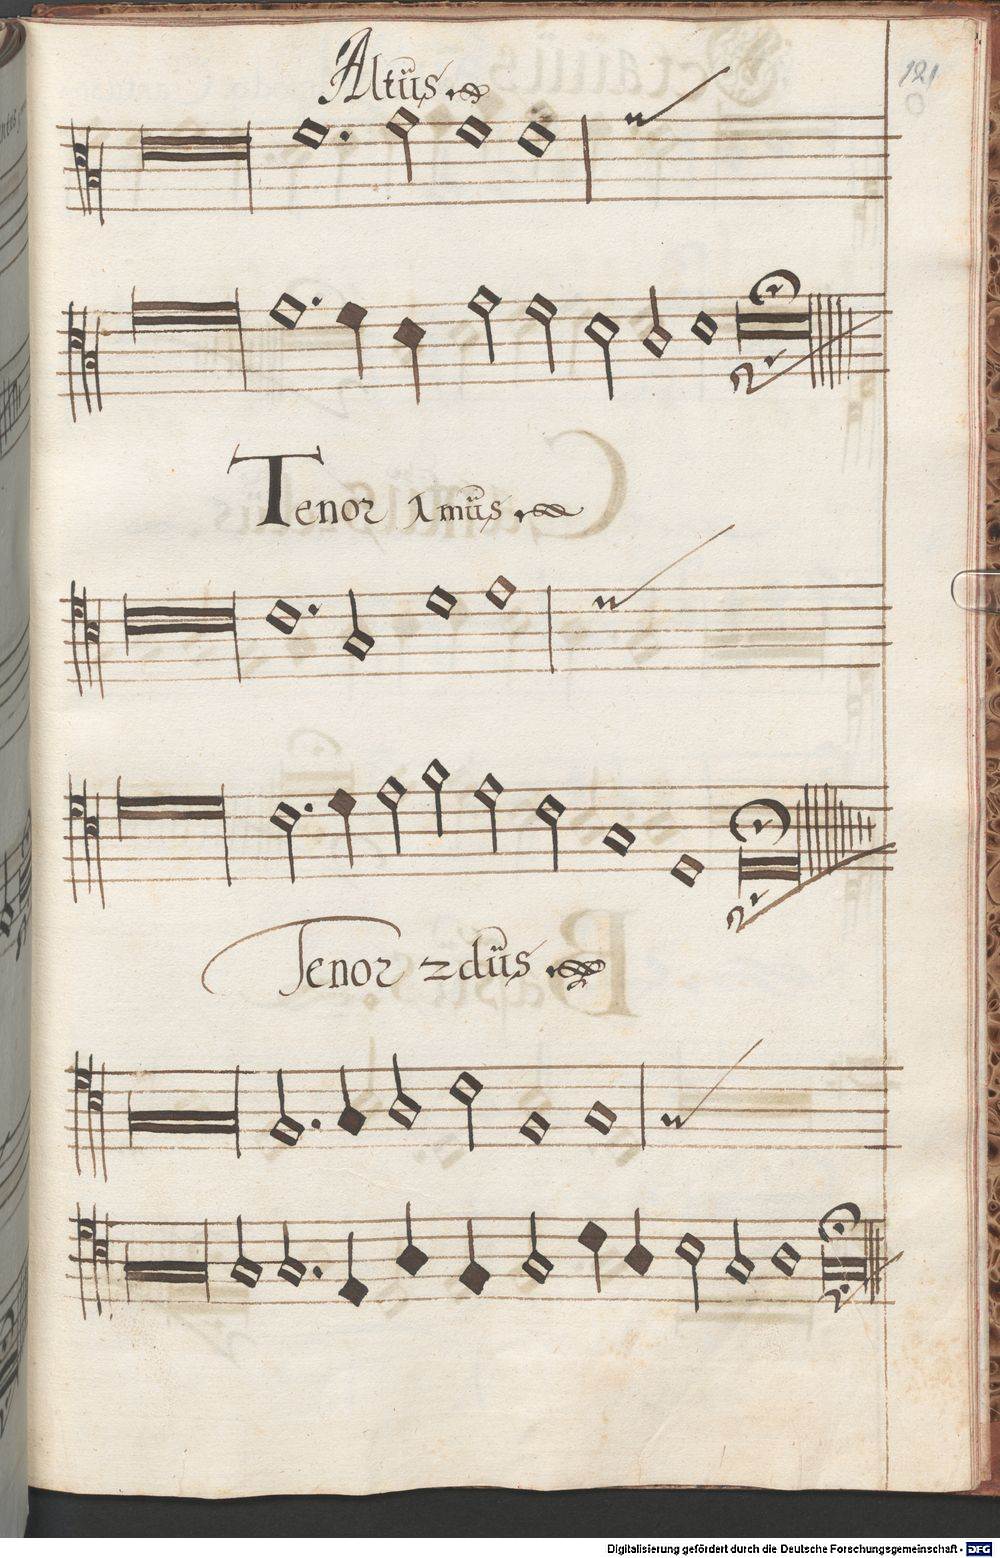 121
Altüs
Tenor 1müs
Tenor 2düs
Digitalisierung gefördert durch die Deutsche Forschungsgemeinschaft - DFG